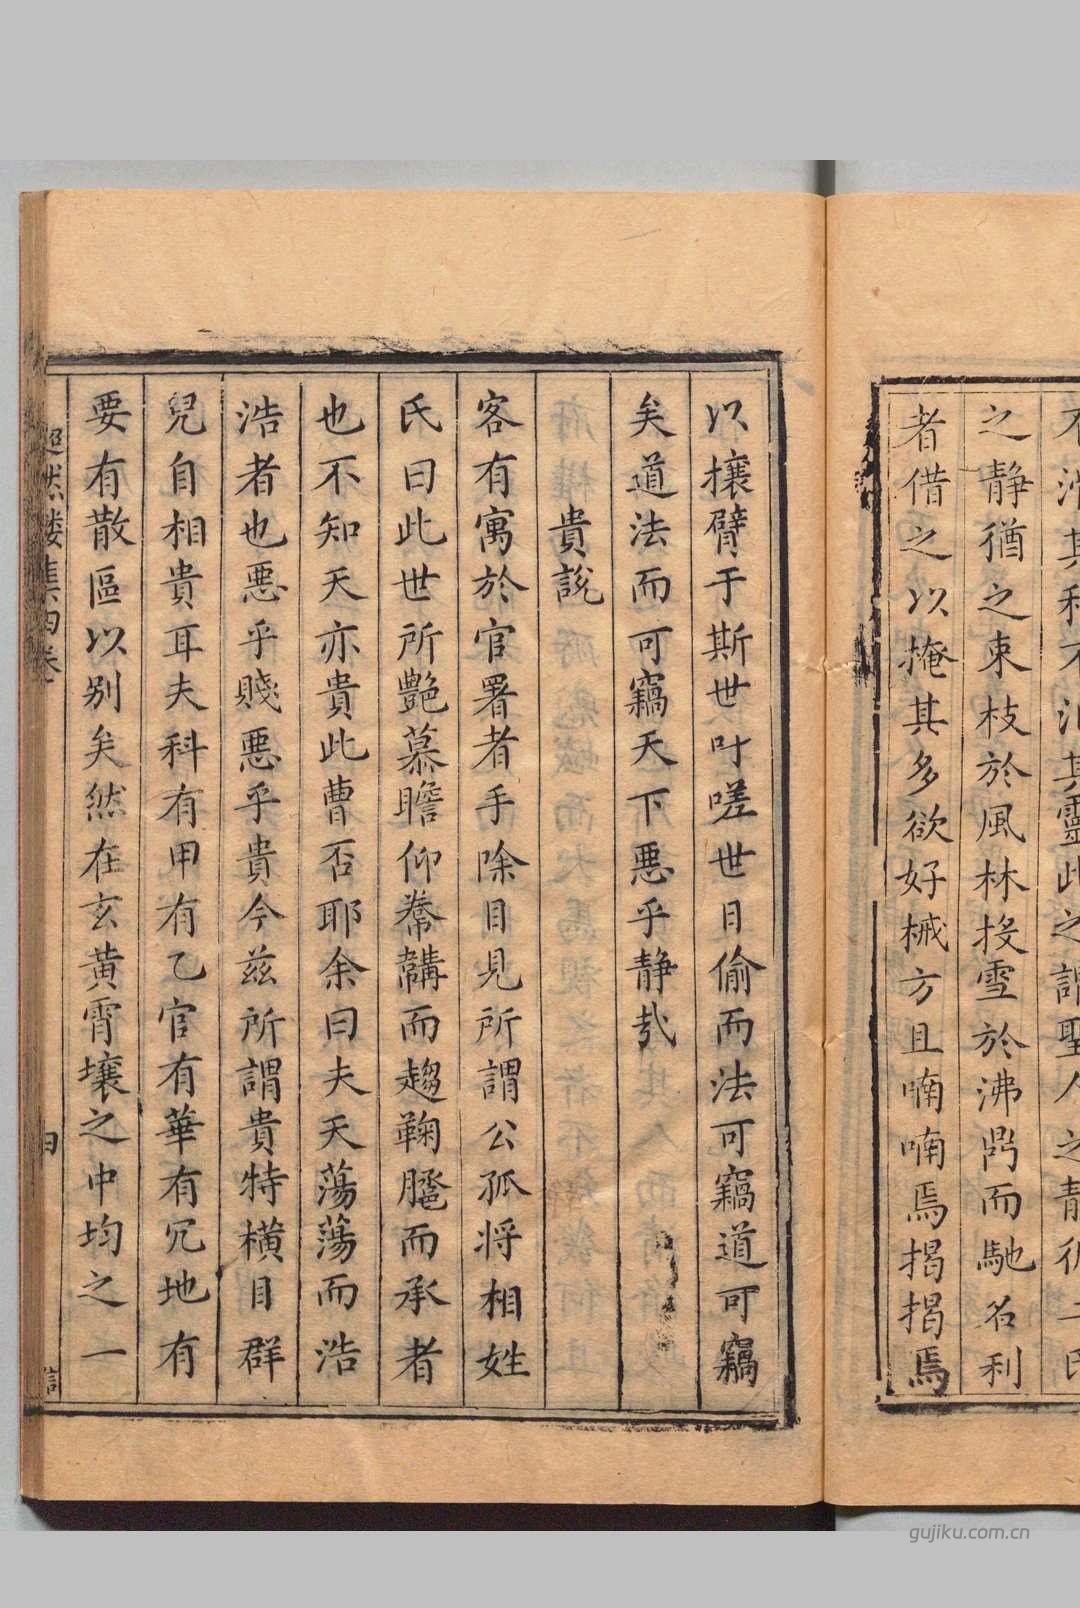 之靜猶之束枝於風林投雪於沸鼎而馳名利
者借之以掩其多欲好械方且喃喃焉揭揭焉
以攘臂于斯世吁嗟世日偷而法可竊道可竊
矣道法而可竊天下惡乎靜哉
貴說
客有寓於官署者手除目見所謂公孤將相姓
氏曰此世所艷慕瞻仰帣韝而趨鞠䠆而承者
也不知天亦貴此曹否耶余曰夫天蕩蕩而浩
浩者也惡乎賤惡乎貴今茲所謂貴特橫目群
兒自相貴耳夫科有甲有乙官有華有冗地有
要有散區以別矣然在玄黃霄壤之中均之一
超然樓集四卷
四
gujiku.com.cn